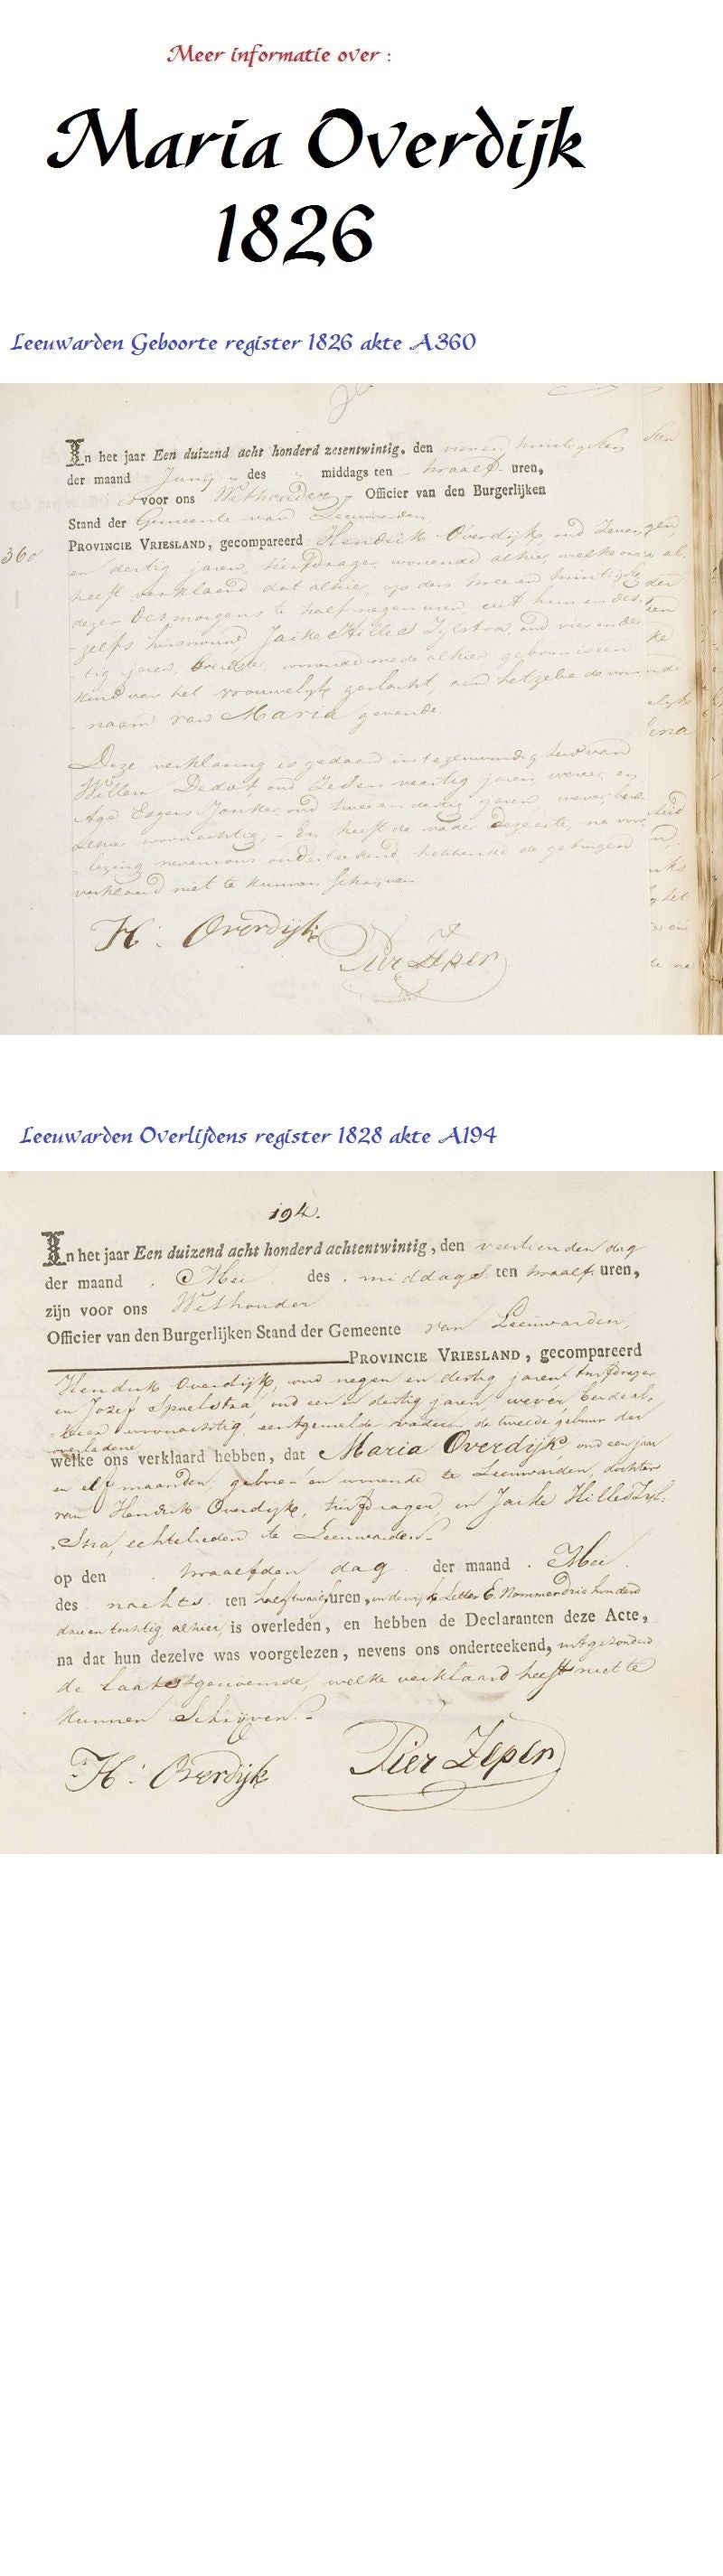 Meer informatie over :
Maria Overdijk
1826
Leeuwarden Geboorte register 1826 akte A360
In het jaar Een duizend acht honderd zesentwintig, den
der maand Junij des middags ten twaalf uren,
voor ons Wethouder Officier van den Burgerlijken
Stand der Gemeente van Leeuwarden
PROVINCIE VRIESLAND, gecompareerd Hendrik Overdijk, oud zeven
360
en dertig jaren, turfdrager, wonende alhier, welke ons
heeft verklaard dat alhier, op den twee en twintigste
dezer des morgens te half negen uren, uit hem en des
zelfs huisvrouw, Jaike Hilles Zylstra, oud vier en der
tig jaren, wonende mede alhier geboren is een
kind van het vrouwelijk geslacht, aan hetzelve de voor
naam van Maria gevende.
Deze verklaring is gedaan in tegenwoordigheid van
Willem Dedot oud zeven veertig jaren, wever, en
Age Jonker, oud twee en dertig jaren, wever, beide
alhier woonachtig. - En heeft de vader deze acte, na voor
lezing nevens ons onderteekend, hebbende de getuigen
verklaard niet te kunnen schrijven
H: Overdijk
Pier Zeper
Leeuwarden Overlijdens register 1828 akte A194
194.
In het jaar Een duizend acht honderd achtentwintig, den veertienden dag
der maand Mei des middags ten twaalf uren,
zijn voor ons Wethouder
Officier van den Burgerlijken Stand der Gemeente van Leeuwarden,
PROVINCIE VRIESLAND, gecompareerd
Hendrik Overdijk, oud negen en dertig jaren, turfdrager
en Jozef Spoelstra, oud een en dertig jaren, wever, beide al
hier woonachtig, eerstgemelde vader en de tweede gebuur der
overledene
welke ons verklaard hebben, dat Maria Overdijk, oud een jaar
en elf maanden, geboren en wonende te Leeuwarden, dochter
van Hendrik Overdijk, turfdrager, en Jaike Hilles Zyl-
stra, echtelieden te Leeuwarden
op den twaalfden dag der maand Mei
des nachts ten half twaalf uren, in de wijk Letter E. Nommer drie honderd
drie en tachtig, alhier, is overleden, en hebben de Declaranten deze Acte,
na dat hun dezelve was voorgelezen, nevens ons onderteekend, uitgezonderd
de laatstgenoemde, welke verklaard heeft niet te
kunnen schrijven. -
H: Overdijk
Pier Zeper